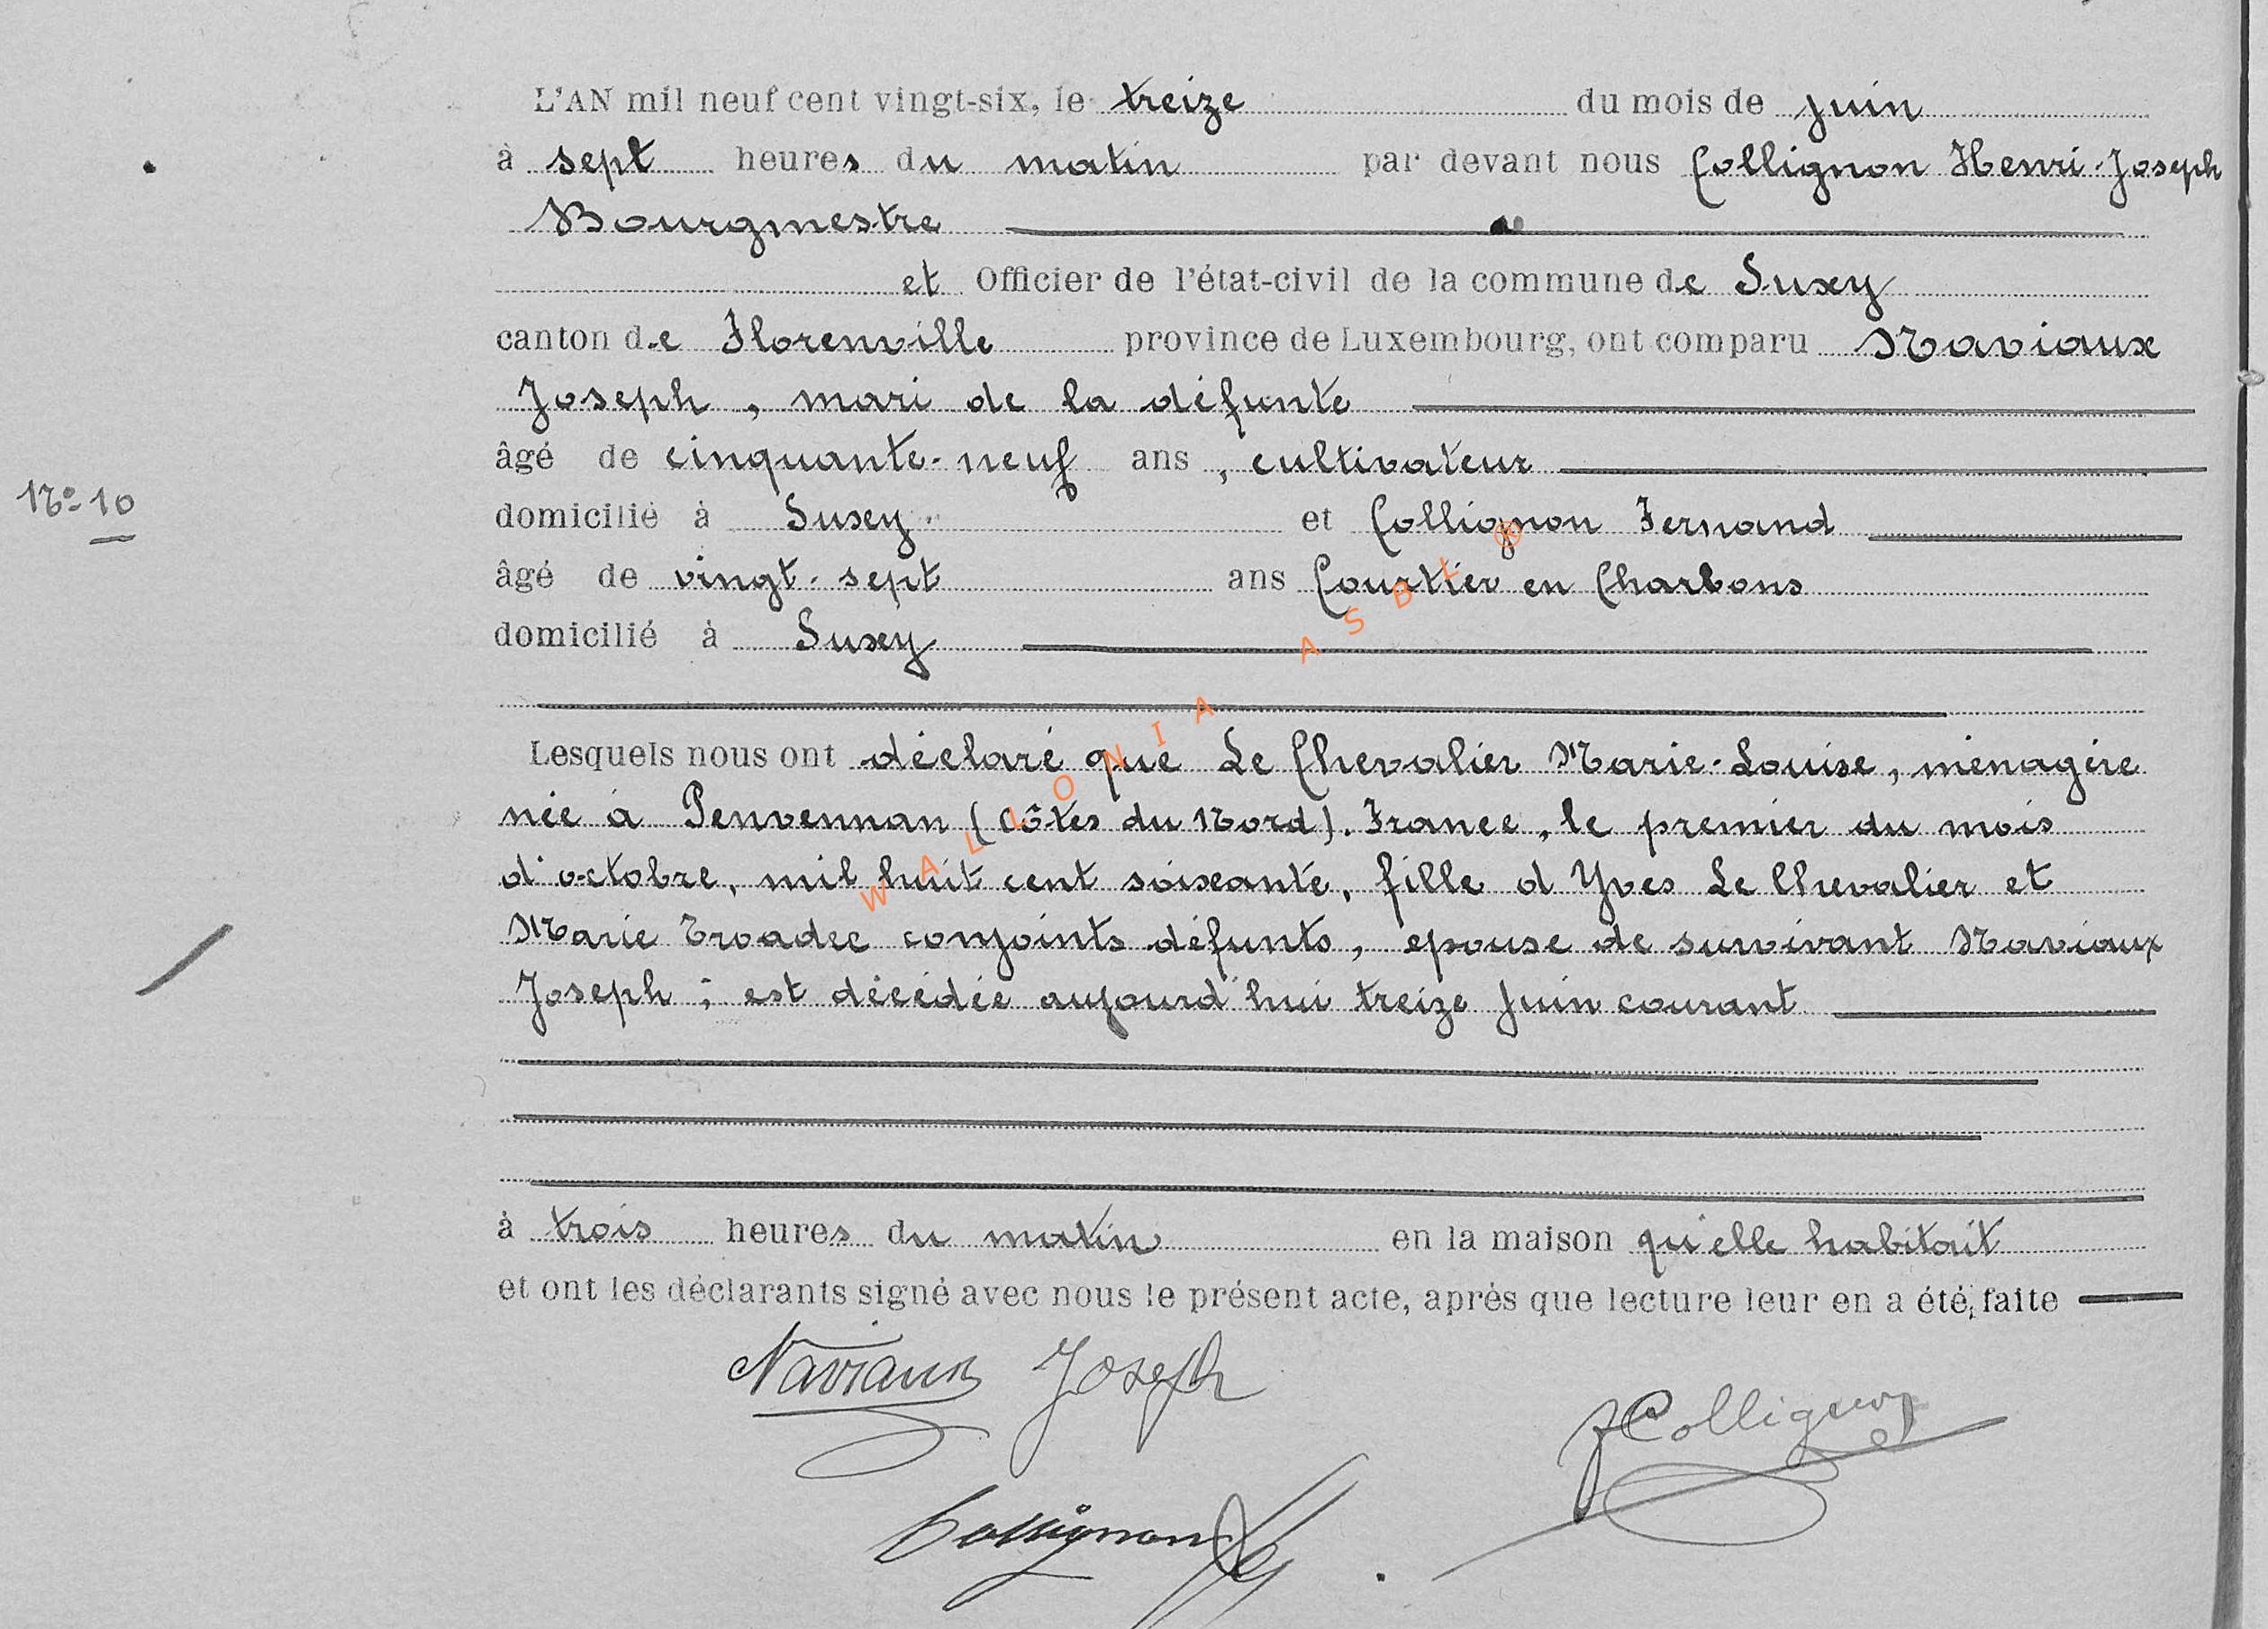 L'AN mil neuf cent vingt-six, le treize du mois de juin
à sept heures du matin par devant nous Collignon Henri-Joseph
Bourgmestre
et Officier de l'état-civil de la commune de Suxy
canton de Florenville province de Luxembourg, ont comparu Naviaux
Joseph, mari de la défunte
âgé de cinquante-neuf ans, cultivateur
N° 10
domicilié à Suxy et Collignon Fernand
âgé de vingt-sept ans Courtier en Charbons
domicilié à Suxy
Lesquels nous ont déclaré que Le Chevalier Marie-Louise, ménagère
née à Penvennan (Côtes du Nord). France, le premier du mois
d'octobre, mil huit cent soixante, fille d'Yves Le Chevalier et
Marie Troadec conjoints défunts, épouse de survivant Naviaux
Joseph ; est décédée aujourd'hui treize Juin courant
à trois heures du matin en la maison qu'elle habitait
et ont les déclarants signé avec nous le présent acte, après que lecture leur en a été, faite
Naviaux Joseph
F Collignon
Collignon
WALLONIA ASBL ®